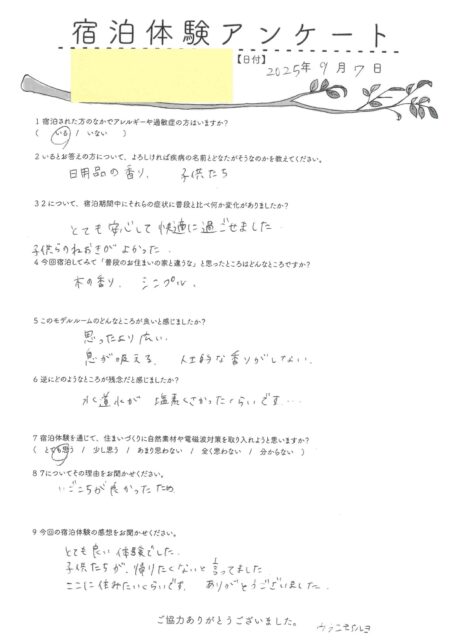 宿泊体験アンケート
【日付】
2025年9月7日
1 宿泊された方のなかでアレルギーや過敏症の方はいますか?
( いる / いない )
2 いるとお答えの方について、よろしければ疾病の名前とどなたがそうなのかを教えてください。
日用品の香り、 子供たち
3 2について、宿泊期間中にそれらの症状に普段と比べ何か変化がありましたか?
とても安心して快適に過ごせました
子供らのねおきがよかった。
4 今回宿泊してみて「普段のお住まいの家と違うな」と思ったところはどんなところですか?
木の香り、 シンプル、
5 このモデルルームのどんなところが良いと感じましたか?
思ったより広い、
息が吸える、 人工的な香りがしない、
6 逆にどのようなところが残念だと感じましたか?
水道水が 塩素くさかったくらいです…
7 宿泊体験を通じて、住まいづくりに自然素材や電磁波対策を取り入れようと思いますか?
( とても思う / 少し思う / あまり思わない / 全く思わない / 分からない )
8 7についてその理由をお聞かせください。
いごこちが良かったため
9 今回の宿泊体験の感想をお聞かせください。
とても良い体験でした。
子供たちが、帰りたくないと言ってました
ここに住みたいくらいです。 ありがとうございました。
ご協力ありがとうございました。